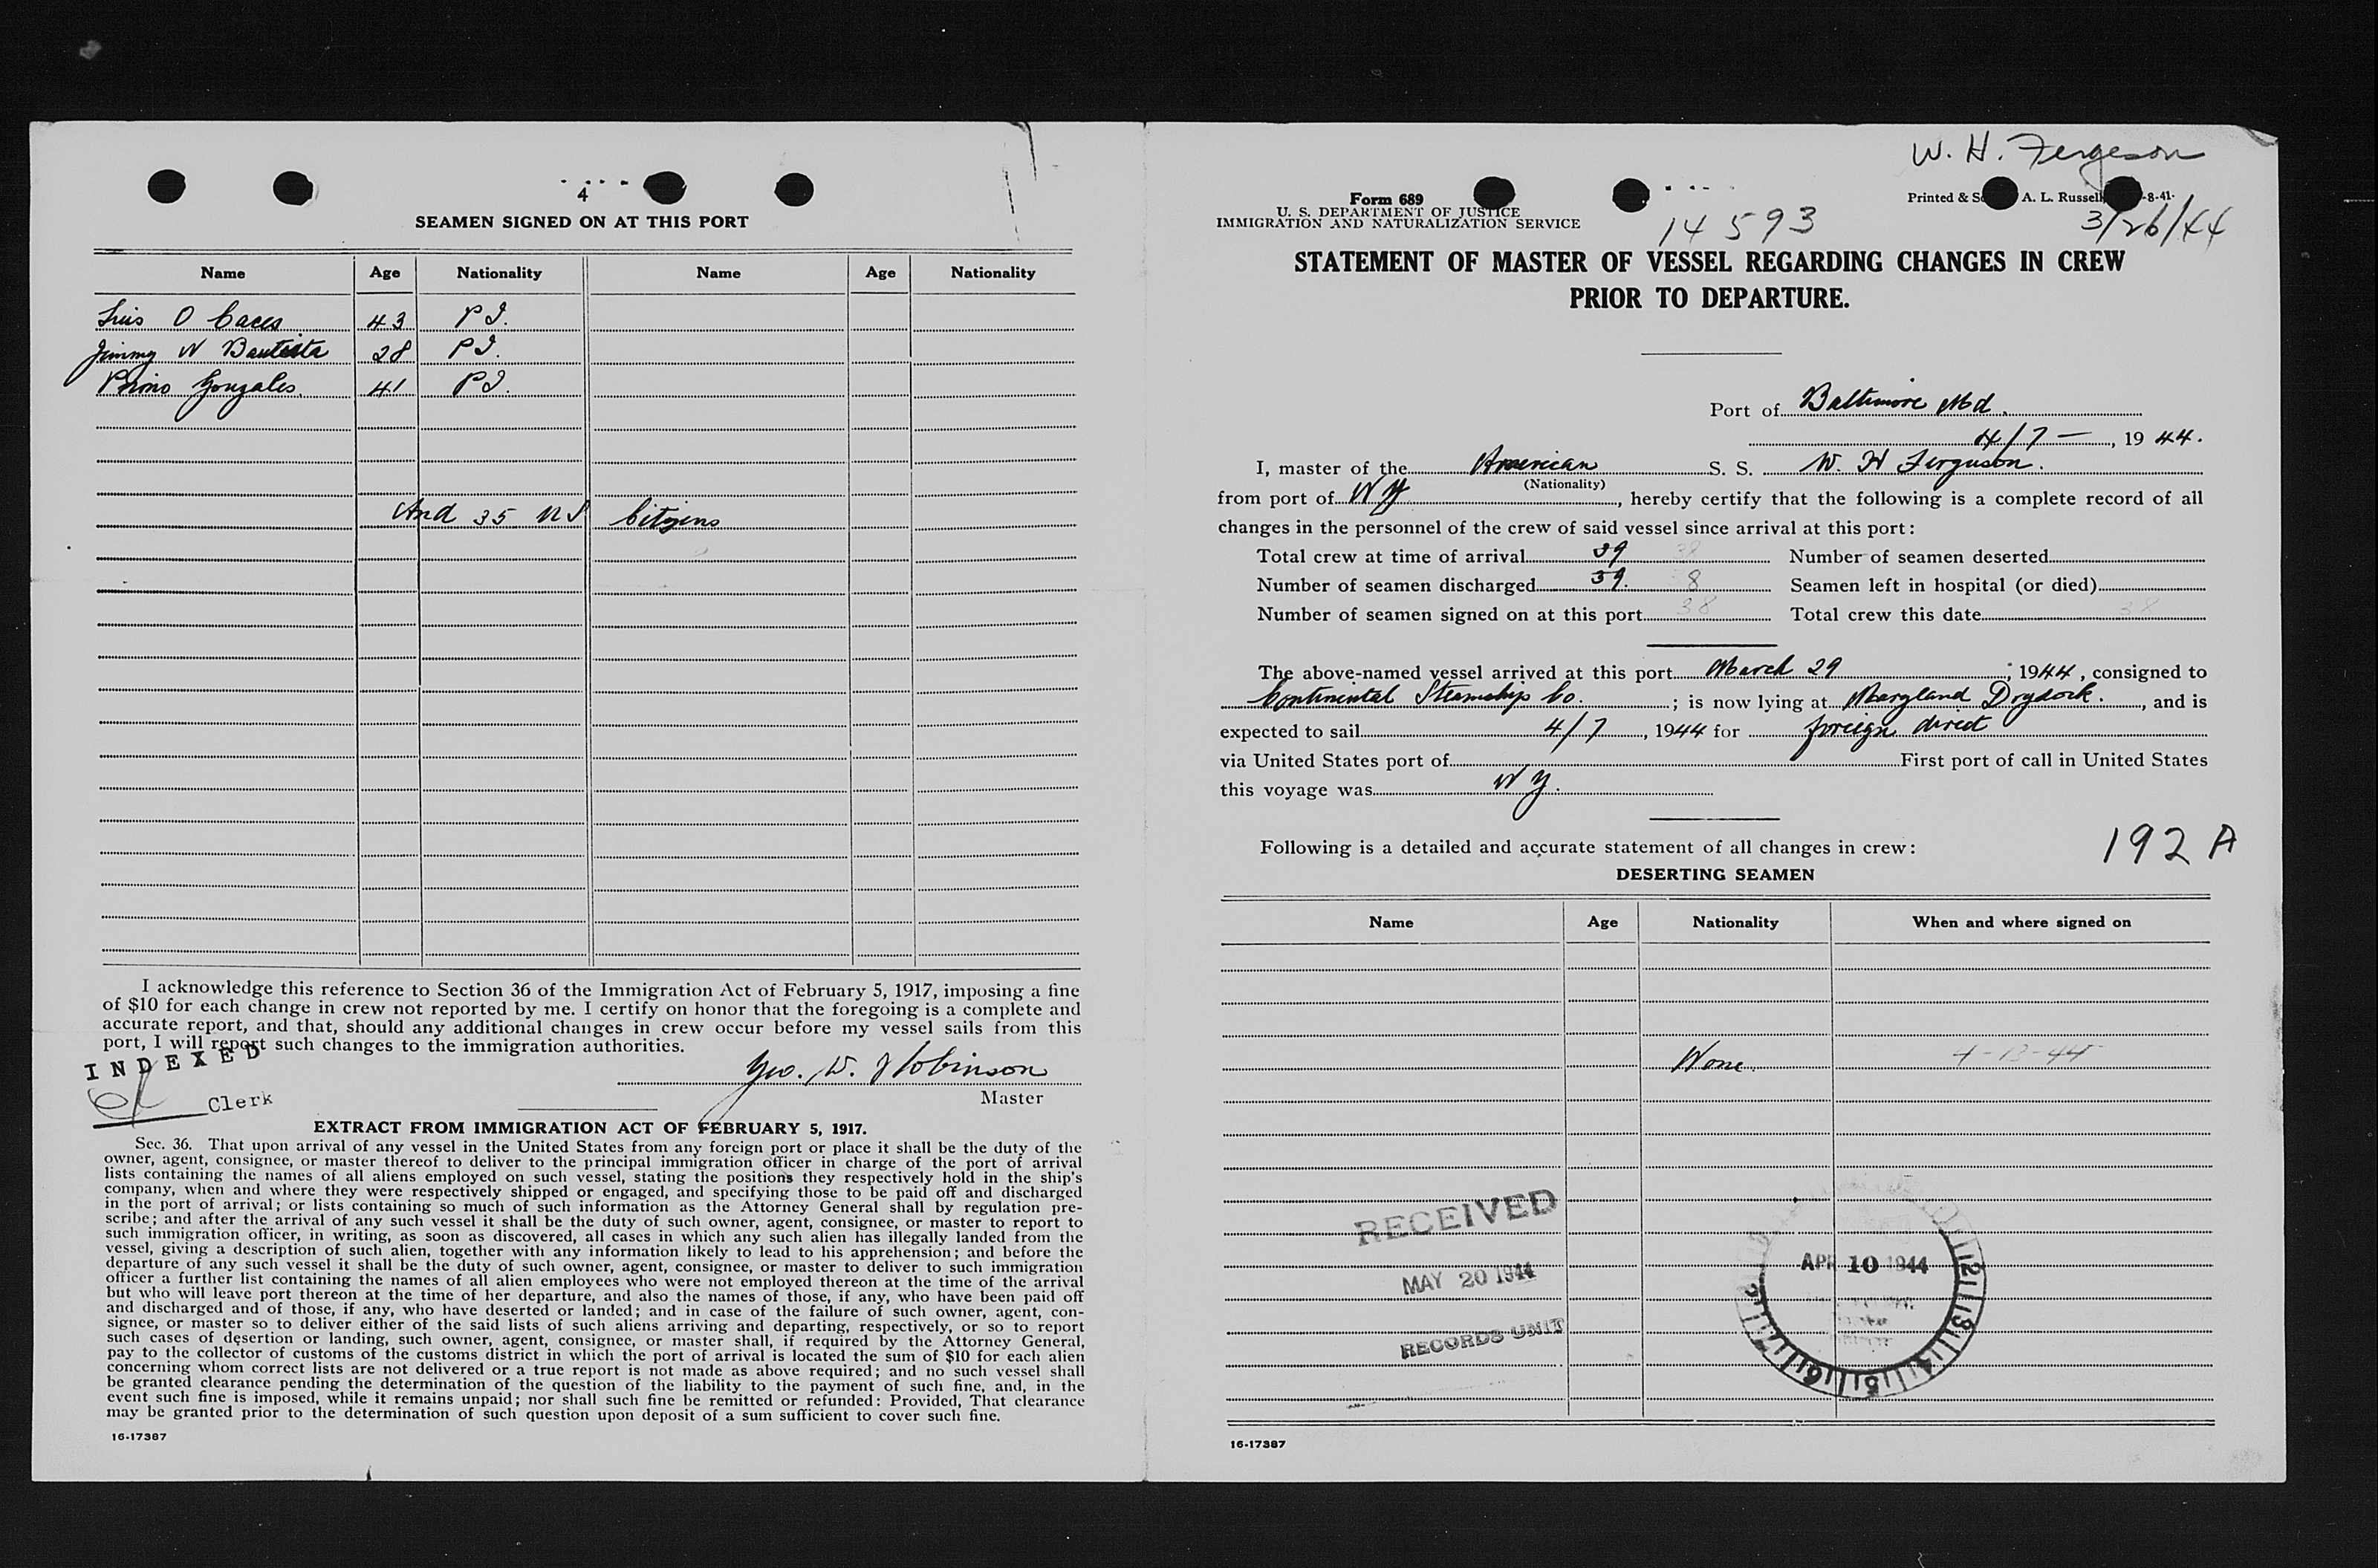 4
SEAMEN SIGNED ON AT THIS PORT
Name Age Nationality Name Age Nationality
Luis O Caces 43 P I.
Jimmy N Bautista 28 P I.
Primo Gonzales. 41 P I.
And 35 US Citizens
I acknowledge this reference to Section 36 of the Immigration Act of February 5, 1917, imposing a fine
of $10 for each change in crew not reported by me. I certify on honor that the foregoing is a complete and
accurate report, and that, should any additional changes in crew occur before my vessel sails from this
port, I will report such changes to the immigration authorities.
INDEXED
Geo. W. Robinson
Clerk
Master
EXTRACT FROM IMMIGRATION ACT OF FEBRUARY 5, 1917.
Sec. 36. That upon arrival of any vessel in the United States from any foreign port or place it shall be the duty of the
owner, agent, consignee, or master thereof to deliver to the principal immigration officer in charge of the port of arrival
lists containing the names of all aliens employed on such vessel, stating the positions they respectively hold in the ship's
company, when and where they were respectively shipped or engaged, and specifying those to be paid off and discharged
in the port of arrival; or lists containing so much of such information as the Attorney General shall by regulation pre-
scribe; and after the arrival of any such vessel it shall be the duty of such owner, agent, consignee, or master to report to
such immigration officer, in writing, as soon as discovered, all cases in which any such alien has illegally landed from the
vessel, giving a description of such alien, together with any information likely to lead to his apprehension; and before the
departure of any such vessel it shall be the duty of such owner, agent, consignee, or master to deliver to such immigration
officer a further list containing the names of all alien employees who were not employed thereon at the time of the arrival
but who will leave port thereon at the time of her departure, and also the names of those, if any, who have been paid off
and discharged and of those, if any, who have deserted or landed; and in case of the failure of such owner, agent, con-
signee, or master so to deliver either of the said lists of such aliens arriving and departing, respectively, or so to report
such cases of desertion or landing, such owner, agent, consignee, or master shall, if required by the Attorney General,
pay to the collector of customs of the customs district in which the port of arrival is located the sum of $10 for each alien
concerning whom correct lists are not delivered or a true report is not made as above required; and no such vessel shall
be granted clearance pending the determination of the question of the liability to the payment of such fine, and, in the
event such fine is imposed, while it remains unpaid; nor shall such fine be remitted or refunded: Provided, That clearance
may be granted prior to the determination of such question upon deposit of a sum sufficient to cover such fine.
16-17387
W. H. Fergeson
Form 689
Printed & A. L. Russell -8-41
U. S. DEPARTMENT OF JUSTICE
IMMIGRATION AND NATURALIZATION SERVICE
14593
3/26/44
STATEMENT OF MASTER OF VESSEL REGARDING CHANGES IN CREW
PRIOR TO DEPARTURE.
Port of Baltimore Md.
4/7 —, 1944.
I, master of the American S. S. W. H Ferguson.
(Nationality)
from port of N Y, hereby certify that the following is a complete record of all
changes in the personnel of the crew of said vessel since arrival at this port:
Total crew at time of arrival 39 38 Number of seamen deserted
Number of seamen discharged 39. 8 Seamen left in hospital (or died)
Number of seamen signed on at this port 38 Total crew this date 38
The above-named vessel arrived at this port March 29, 1944, consigned to
Continental Steamship Co.; is now lying at Maryland Drydock., and is
expected to sail 4/7, 1944 for foreign direct
via United States port of First port of call in United States
this voyage was N Y.
192 A
Following is a detailed and accurate statement of all changes in crew:
DESERTING SEAMEN
Name Age Nationality When and where signed on
None. 4-13-44
RECEIVED
MAY 20 1944
RECORDS UNIT
APR 10 1944
2 3 4 5 6 7
16-17387